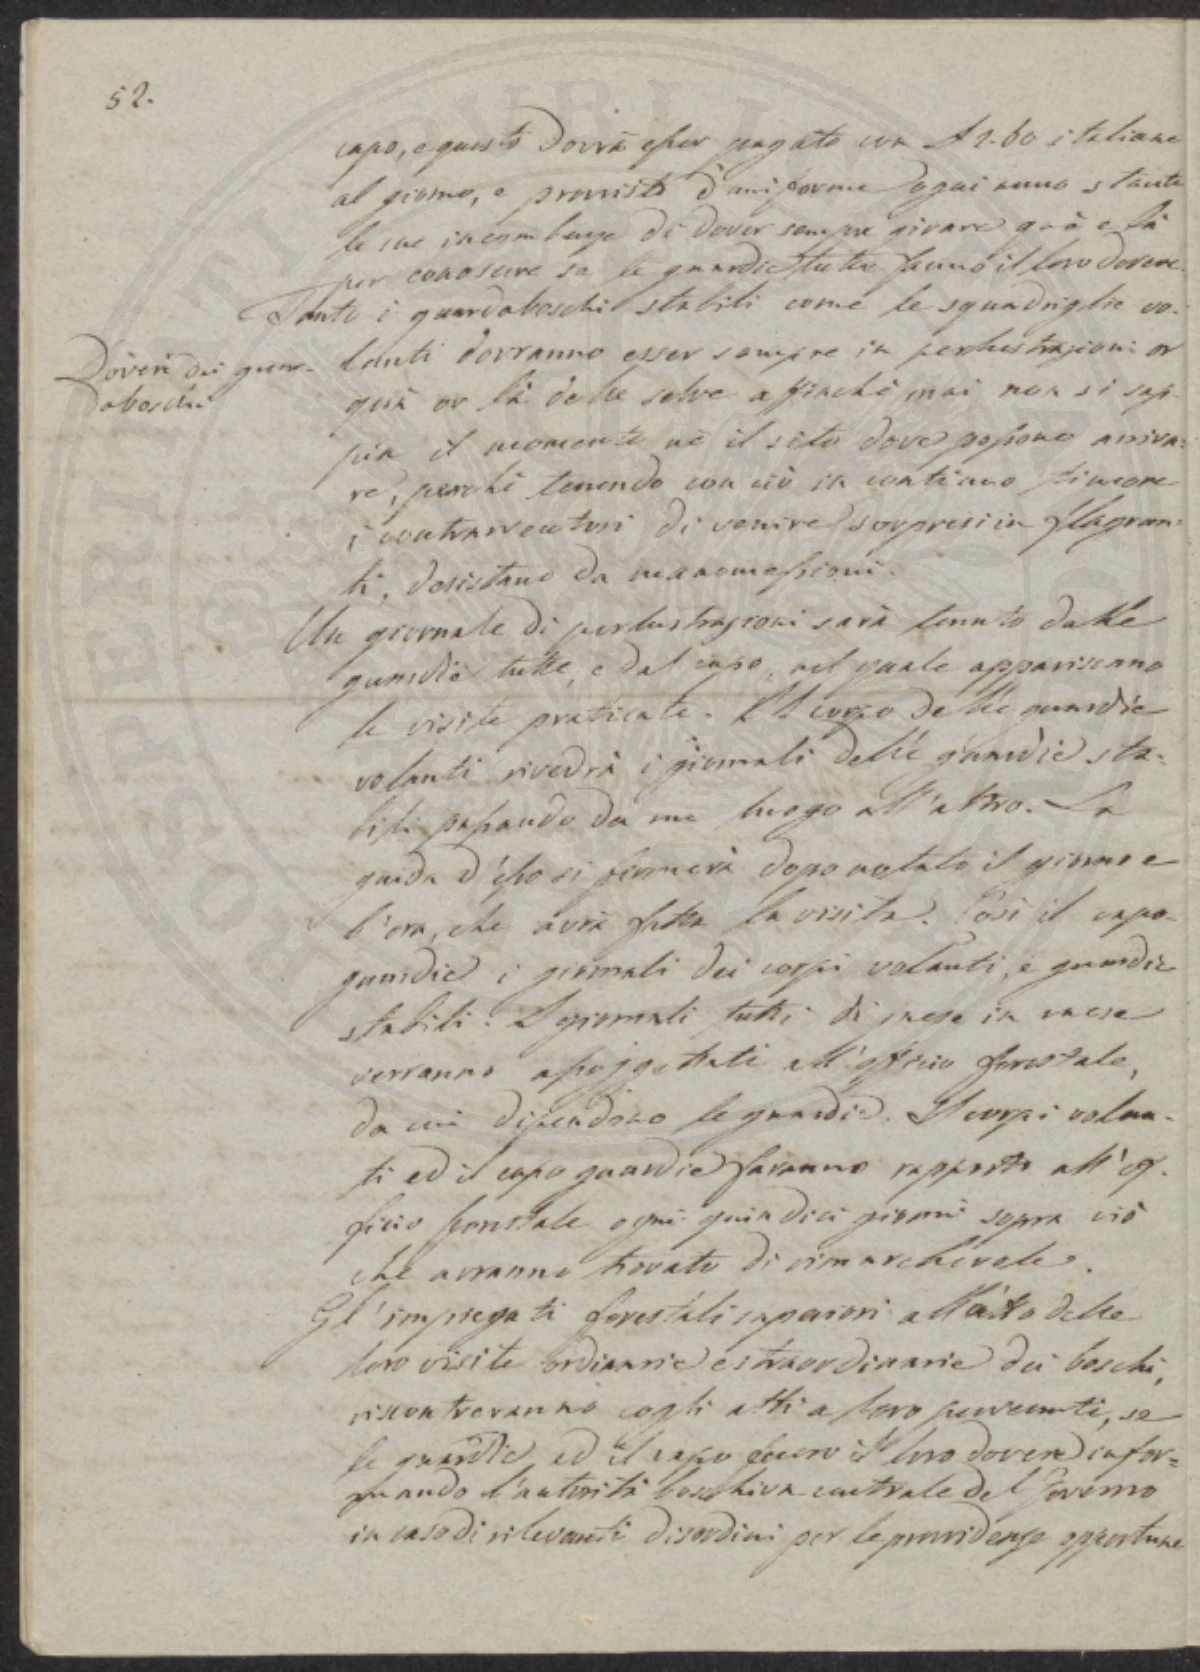 52.
capo, e questo dovrà esser pagato con £ 2.60 italiane
al giorno, e provisto d'uniforme ogni anno stante
le sue incombenze di dover sempre girare quà e là
per conoscere se le guardie tutte fanno il loro dovere.
Tanto i guardaboschi stabili come le squadriglie vo-
Doveri dei guar-
daboschi
lanti dovranno esser sempre in perlustrazioni or
quà or là delle selve affinchè mai non si sap-
pia il momento nè il sito dove possono arriva-
re, perchè tenendo con ciò in continuo timore
i contravventori di venire sorpresi in flagran-
ti, desistano da manomessioni.
Un giornale di perlustrazioni sarà tenuto dalle
guardie tutte, e dal capo, nel quale appariscano
le visite praticate. Il corpo delle guardie
volanti rivedrà i giornali delle guardie sta-
bili passando da un luogo all'altro. La
guida d'esso si firmerà dopo notato il giorno e
l'ora, che avrà fatta la visita. Così il capo-
guardie i giornali dei corpi volanti, e guardie
stabili. I giornali tutti di mese in mese
verranno assoggettati all'officio forestale,
da cui dipendono le guardie. I corpi volan-
ti ed il capo guardie faranno rapporto all'of-
ficio forestale ogni quindici giorni sopra ciò
che avranno trovato di rimarchevole.
Gl'impiegati forestali superiori all'atto delle
loro visite ordinarie e straordinarie dei boschi,
riscontreranno cogli atti a loro pervenuti, se
le guardie ed il capo fecero il loro dovere infor-
mando l'autorità boschiva centrale del Governo
in caso di rilevanti disordini per le providenze opportune